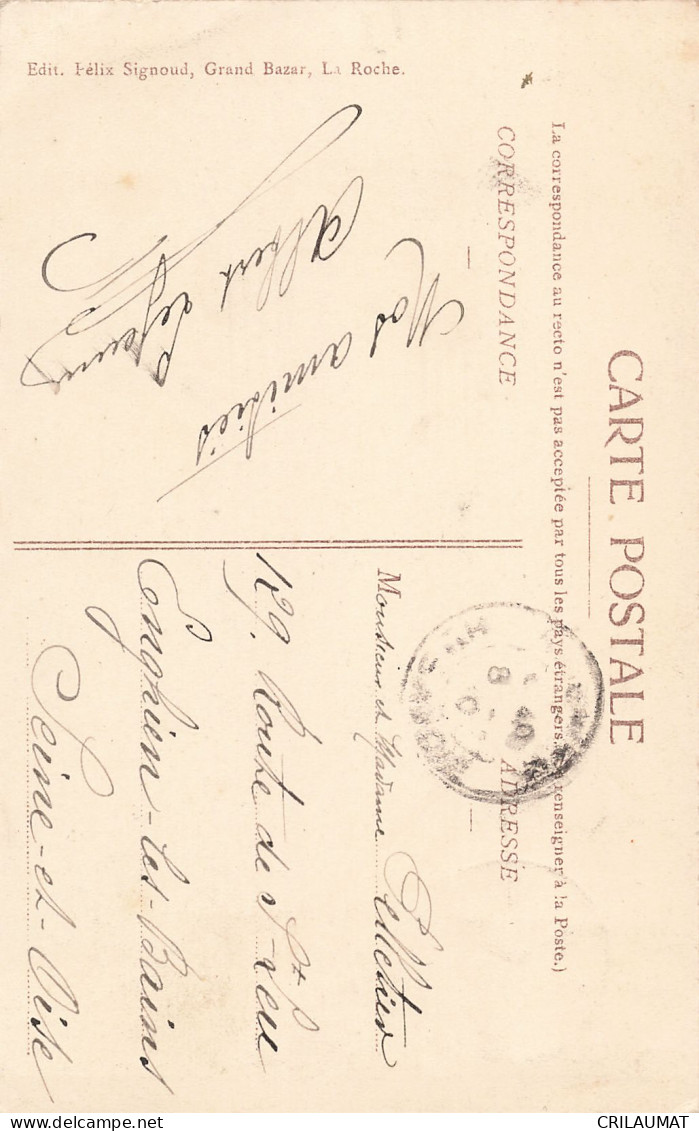 CARTE POSTALE
La correspondance au recto n'est pas acceptée par tous les pays étrangers. renseigner à la Poste.)
CORRESPONDANCE
ADRESSE
Nos amitiés
Albert Lejeune
Monsieur et Madame Pelletier
129. Route de St-Leu
Enghien-les-Bains
Seine-et-Oise
Edit. Félix Signoud, Grand Bazar, La Roche.
CRILAUMAT